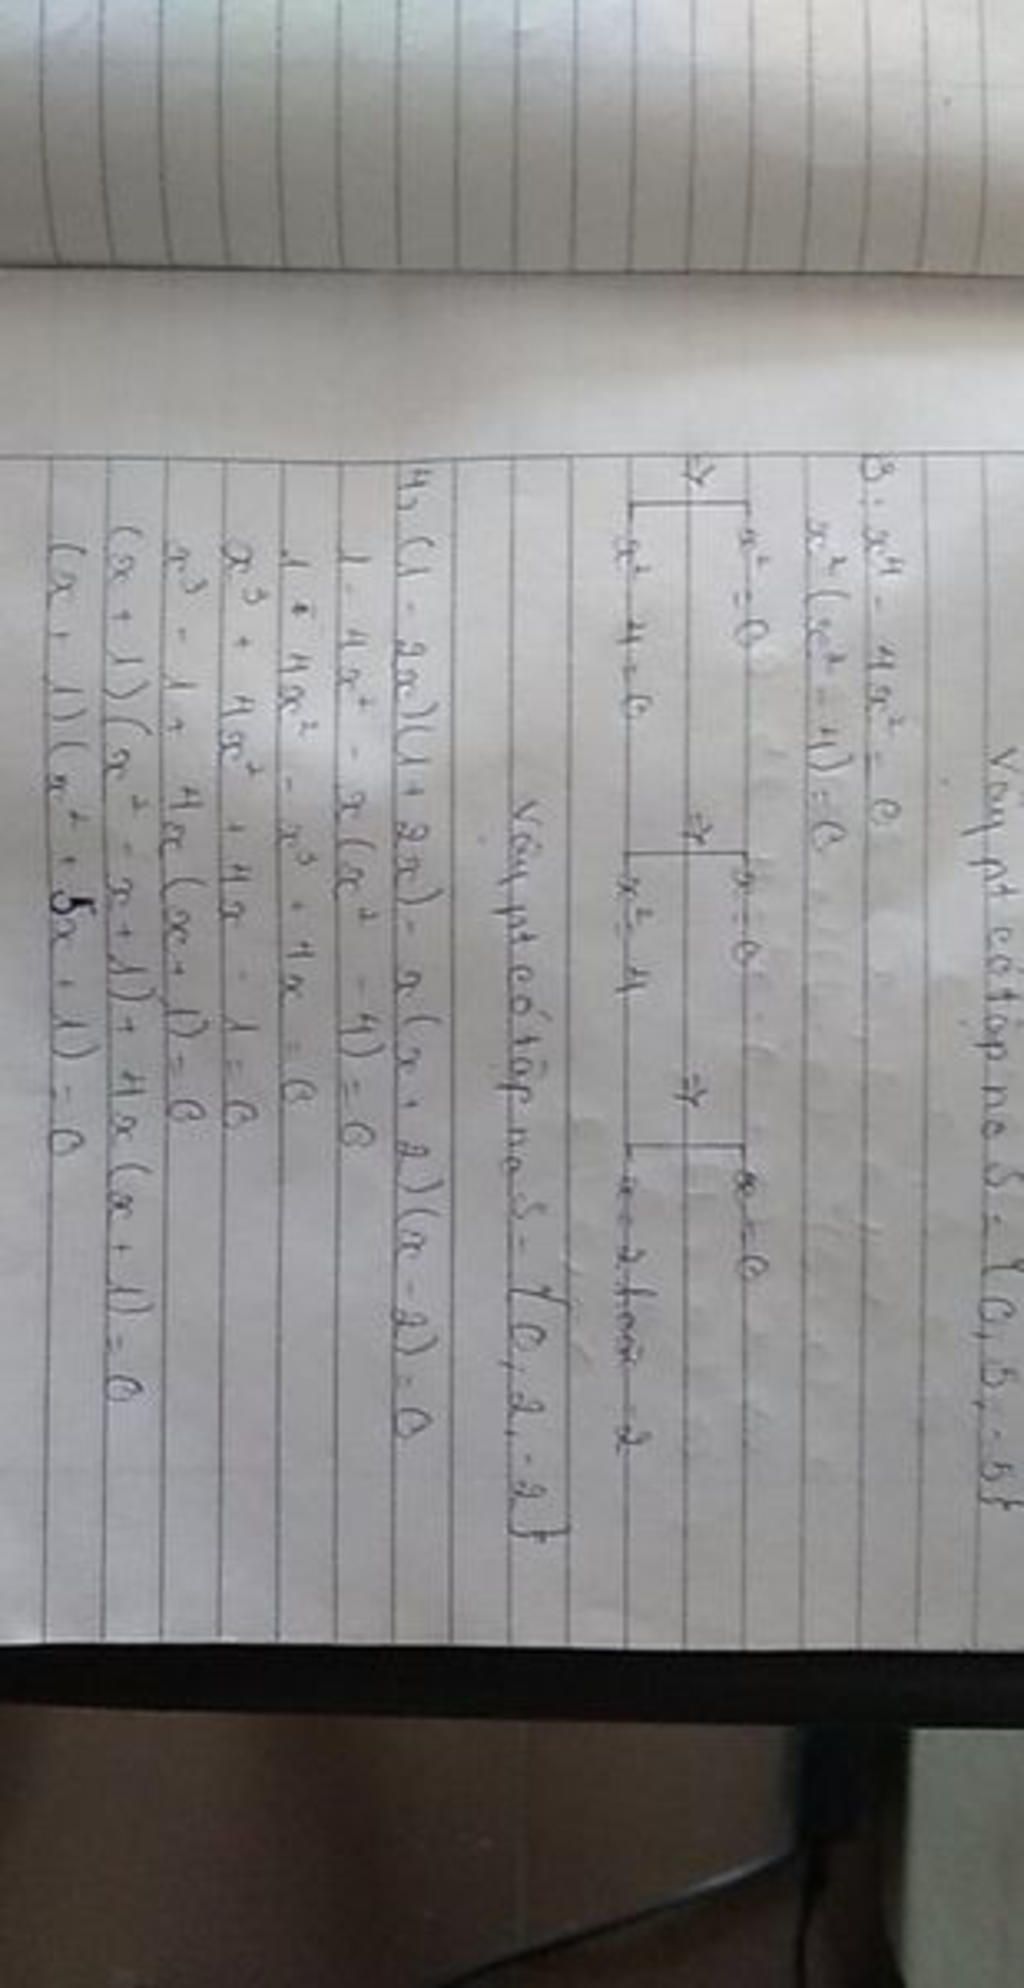 Vậy pt có tập no S = {0, 5, -5}
3. x⁴ - 4x² = 0
x²(x² - 4) = 0
x² = 0 x = 0 x = 0
=> => =>
x² - 4 = 0 x² = 4 x = 2 hoặc -2
Vậy pt có tập no S = {0, 2, -2}
4, (1 - 2x)(1 + 2x) - x(x + 2)(x - 2) = 0
1 - 4x² - x(x² - 4) = 0
1 - 4x² - x³ + 4x = 0
x³ + 4x² + 4x - 1 = 0
x³ - 1 + 4x(x + 1) = 0
(x + 1)(x² - x + 1) + 4x(x + 1) = 0
(x + 1)(x² + 5x + 1) = 0